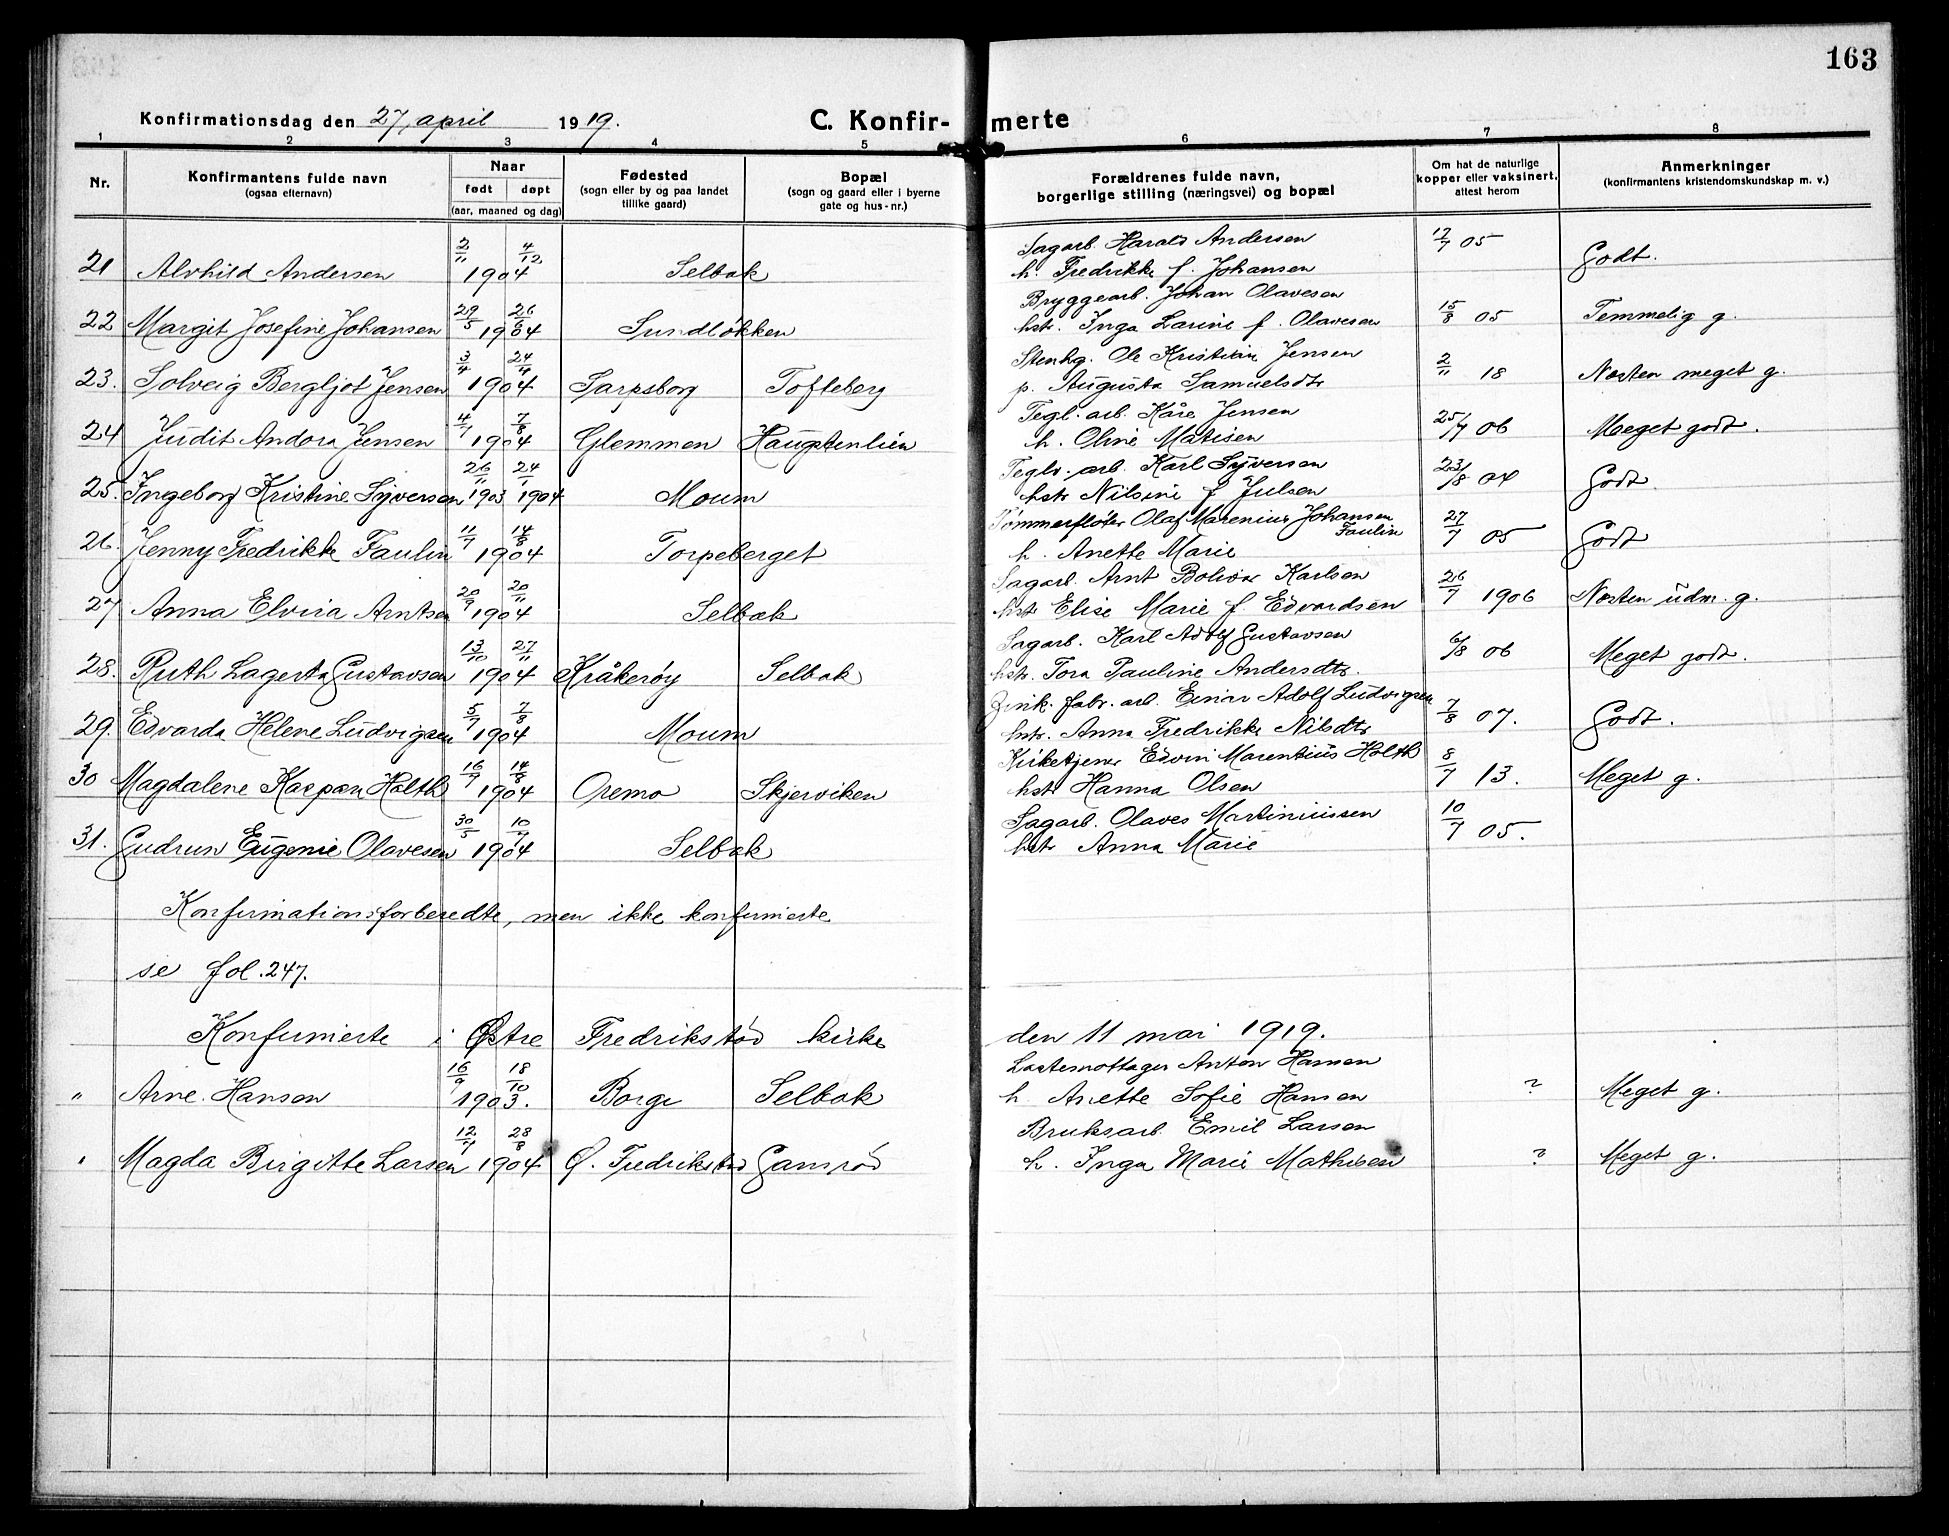 163
Konfirmationsdag den 27. april 1919.
C. Konfir-merte
1 2 3 4 5 6 7 8
Nr.
Konfirmantens fulde navn
(ogsaa efternavn)
Naar
født døpt
(aar, maaned og dag)
Fødested
(sogn eller by og paa landet
tillike gaard)
Bopæl
(sogn og gaard eller i byerne
gate og hus-nr.)
Forældrenes fulde navn,
borgerlige stilling (næringsvei) og bopæl
Om hat de naturlige
kopper eller vaksinert,
attest herom
Anmerkninger
(konfirmantens kristendomskundskap m. v.)
2/11 4/12 Sagarb. Harald Andersen 17/7 05
21 Alvhild Andersen 1904 Selbak h. Fredrikke f. Johansen Godt.
29/5 26/6 Bryggearb. Johan Olavesen
22 Margit Josefine Johansen 1904 Sundløkken hstr. Inga Larine f. Olavesen 15/8 05 Temmelig g.
3/4 24/4 Stenhg. Ole Kristian Jensen
23. Solveig Bergljot Jensen 1904 Sarpsborg Tofteberg p. Augusta Samuelsdtr 2/11 18 Næsten meget g.
4/1 7/8 Tegl. arb. Kåre Jensen
24 Judit Andora Jensen 1904 Glemmen Haugstenlien h. Oline Matisen 25/7 06 Meget godt.
26/11 24/1 Teglv. arb. Karl Syversen
25. Ingeborg Kristine Syversen 1903 1904 Moum hstr Nilsine f Julsen 23/8 04 Godt.
11/7 14/8 Tømmerfløter Olaf Marenius Johansen
Faulin
26. Jenny Fredrikke Faulin 1904 Torpeberget h. Anette Marie 27/7 05 Godt
20/9 20/11 Sagarb. Arnt Bolivar Karlsen
27 Anna Elvira Arntsen 1904 Selbak hstr Elise Marie f. Edvardsen 26/7 1906 Næsten udm. g.
13/10 27/11 Sagarb. Karl Adolf Gustavsen
28. Ruth Lagerta Gustavsen 1904 Kråkerøy Selbak hstr. Tora Pauline Andersdtr. 6/8 06 Meget godt.
5/7 7/8 Zink. fabr. arb. Einar Adolf Ludvigsen
29. Edvarda Helene Ludvigsen 1904 Moum hstr. Anna Fredrikke Nilsdtr 7/8 07. Godt.
16/7 14/8 Kirketjener Edvin Marentius Holth
30 Magdalene Kaspara Holth 1904 Oremo Skjerviken hstr Hanna Olsen 8/7 13. Meget g.
30/5 10/7 Sagarb. Olaves Martiniussen
31. Gudrun Eugenie Olavesen 1904 Selbak hstr Anna Marie 10/7 05.
Konfirmationsforberedte, men ikke konfirmerte
se fol. 247.
Konfirmerte i Østre Fredrikstad kirke den 11 mai 1919.
16/9 18/10 Lastemottager Anton Hansen
" Arne Hansen 1903. Borge Selbak h. Anette Sofie Hansen ? Meget g.
12/4 28/8 Bruksarb. Emil Larsen
" Magda Birgitte Larsen 1904 Ø. Fredrikstad Gansrød h. Inga Marie Mathisen ? Meget g.